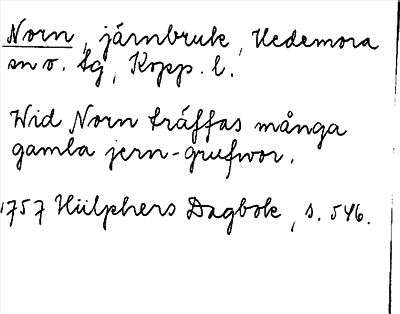 Norn, järnbruk, Hedemora
sn o. tg, Kopp. l.
Wid Norn träffas många
gamla jern-grufwor.
1757 Hülphers Dagbok, s. 546.